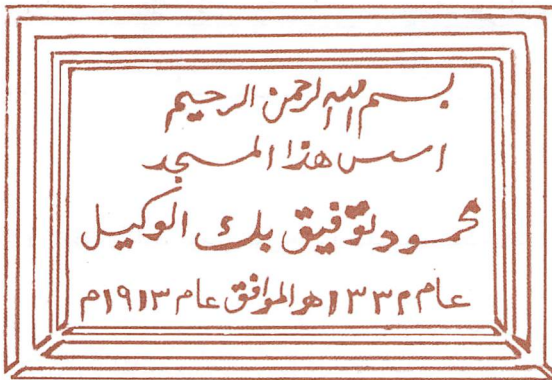 بسم الله الرحمن الرحيم
اسس هذا المسجد
محمود توفيق بك الوكيل
عام ١٣٣٢هـ الموافق عام ١٩١٣م